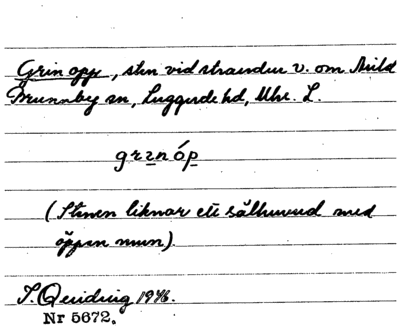 Grin opp, sten vid stranden v. om Arild
Brunnby sn, Luggude hd, Mhs. L.
grɪnóp
(Stenen liknar ett sälhuvud med
öppen mun).
1946.
Nr 5672.